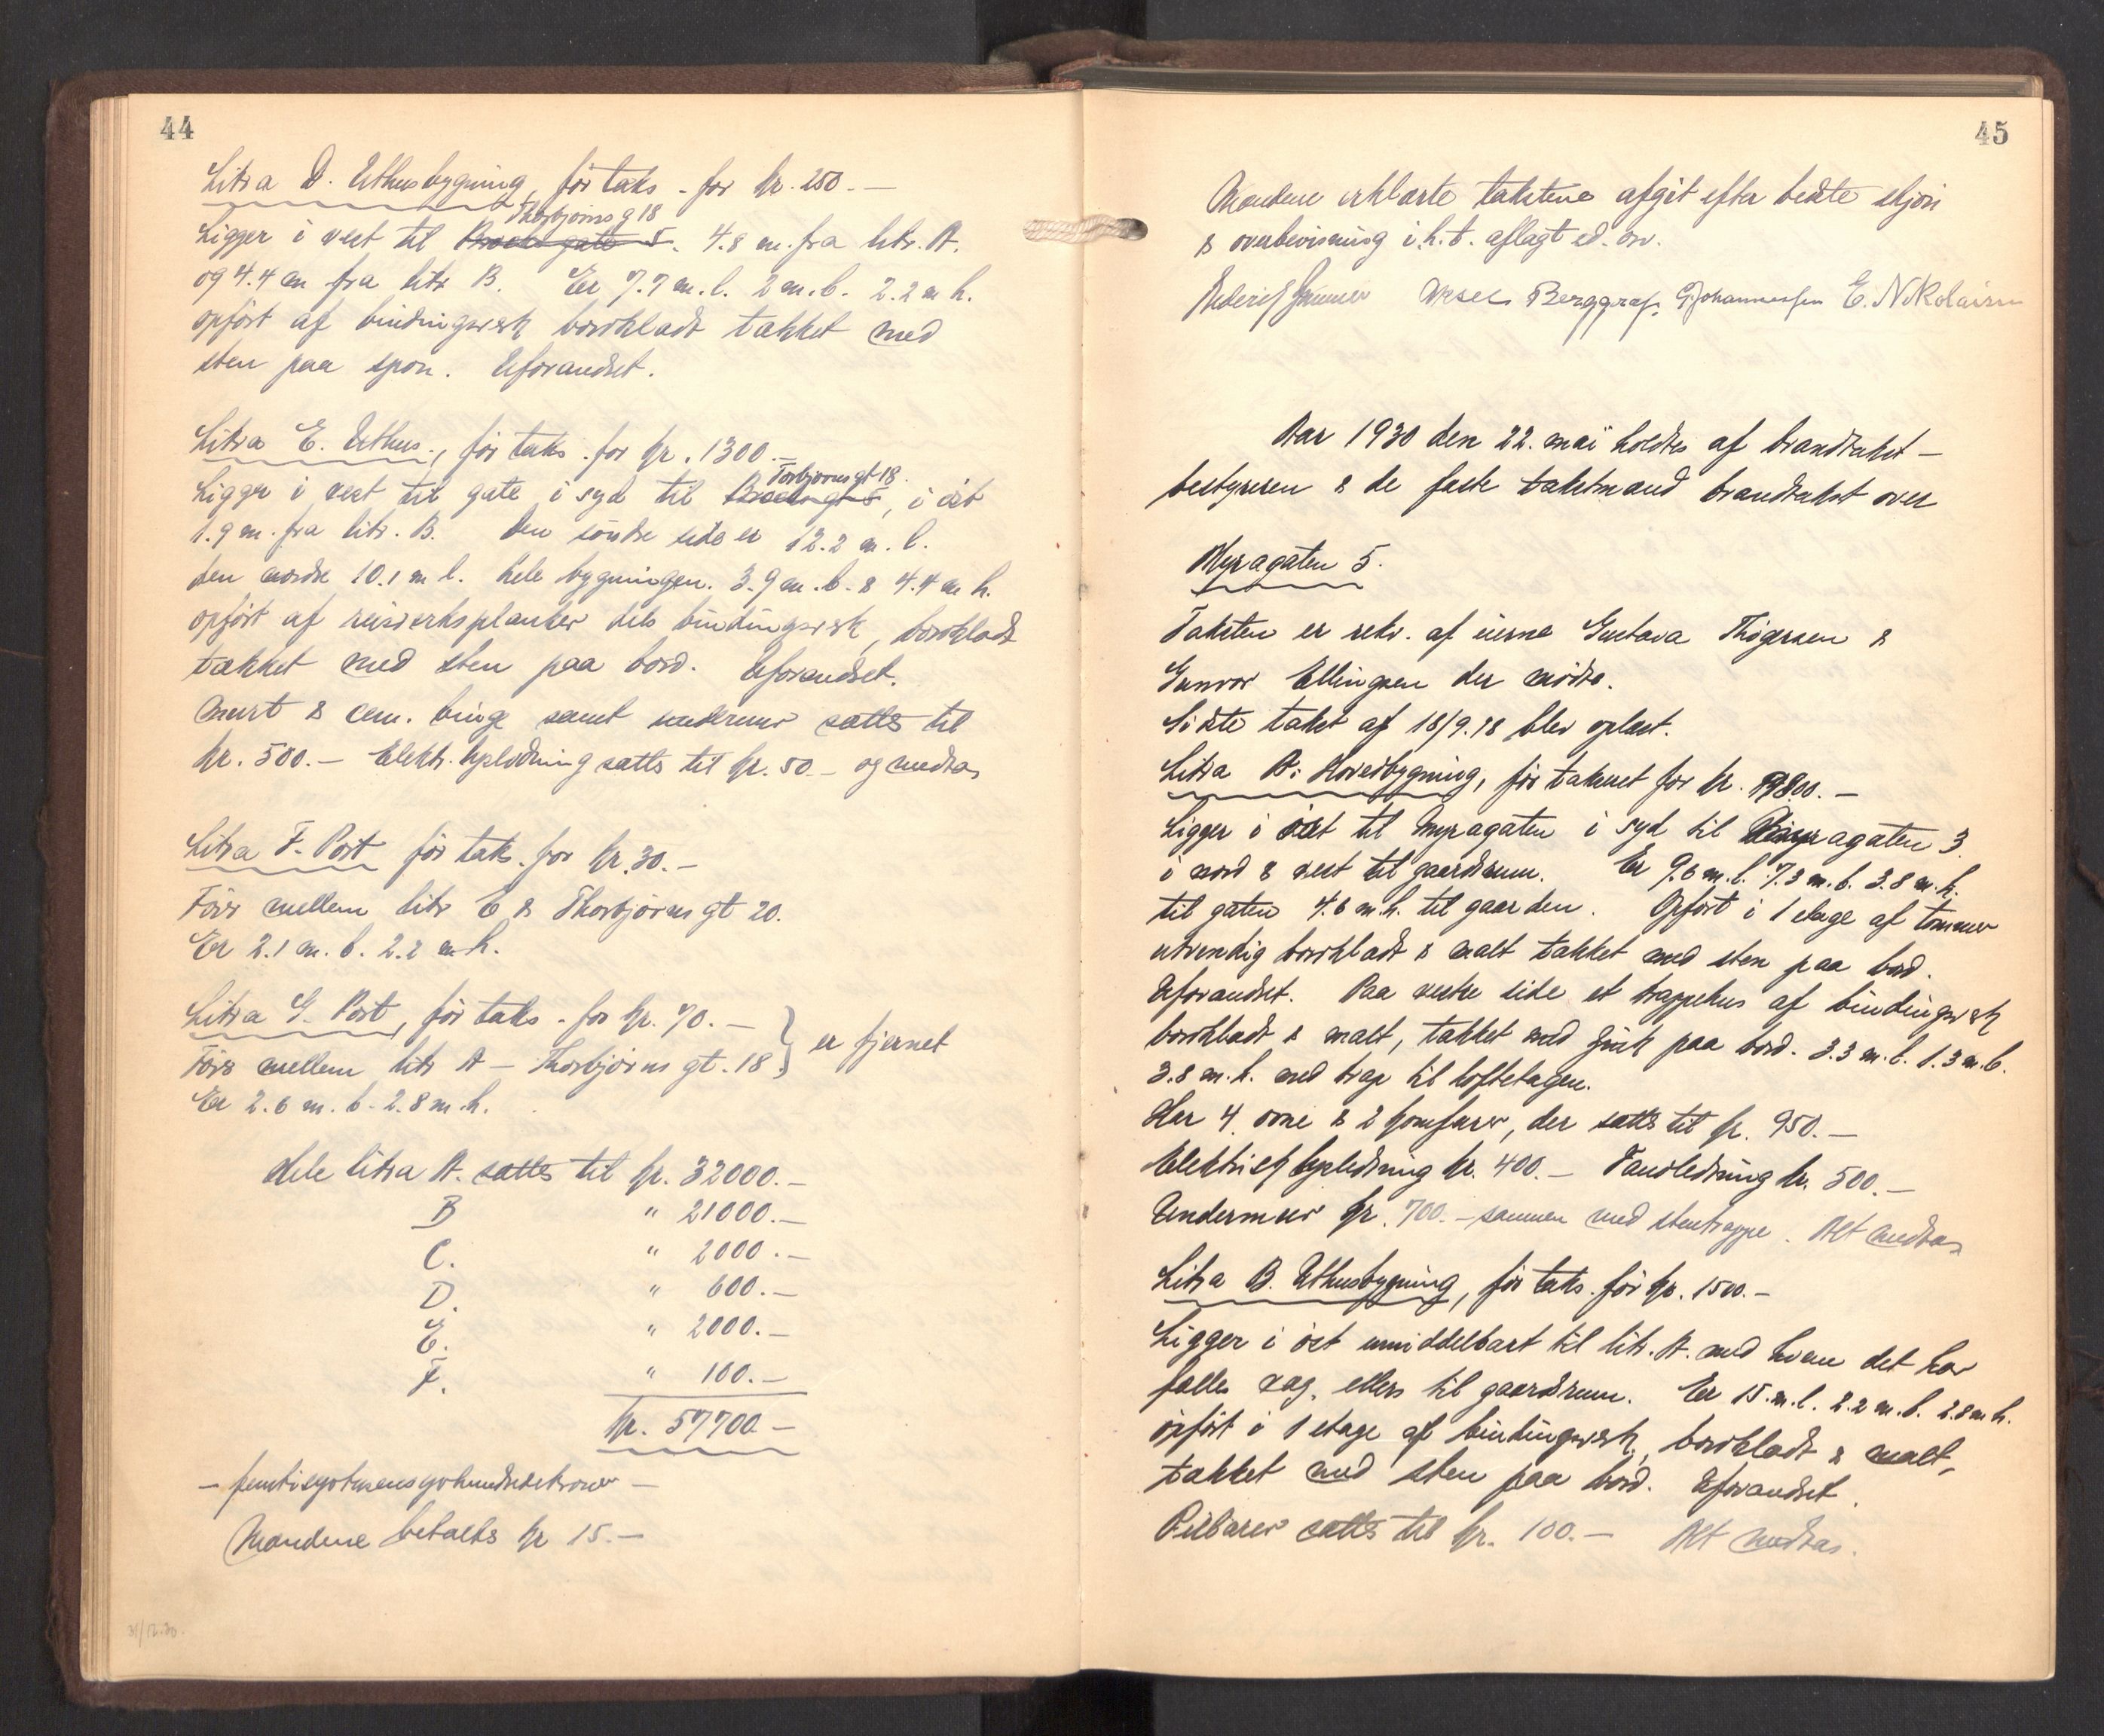 44
Litra D. Uthusbygning, før taks. for kr. 250.—
Thorbjörns g 18
Ligger i vest til Brochs gate 5. 4.8 m. fra litr. A.
og 4.4 m fra litr B. Er 7.7 m. l. 2 m. b. 2.2 m h.
opført af bindingsverk bordklædt tækket med
sten paa spon. Uforandret.
Litra E. Uthus., før taks. for kr. 1300.—
Torbjörnsgt 18.
Ligger i vest til gate, i syd til Brochsgt 5, i öst
1.9 m. fra litr. B. Den söndre side er 12.2 m. l.
den nordre 10.1 m l. hele bygningen. 3.9 m. b. & 4.4 m h.
opført af reisverksplanker dels bindingsverk, bordklædt
tækket med sten paa bord. Uforandret.
Muret & cem. binge samt undermur sættes til
kr. 500.— Elektr. lysledning sættes til kr. 50.— og medtas
Litra F. Port før taks. for kr. 30.—
Förer mellem litr E & Thorbjörns gt 20.
Er 2.1 m. b. 2.2 m h.
Litra G. Port, før taks. for kr. 70.—
Förer mellem litr A — Thorbjörns gt. 18 } er fjernet
Er 2.6 m. b. 2.8 m. h.
Hele litra A. sættes til kr. 32000.—
B " 21000.—
C. " 2000.—
D. " 600.—
E. " 2000.—
F. " 100.—
kr. 57700 —
— femtisyvtusensyvhundredekroner —
Mændene betaltes kr 15.—
31/12.30.
45
Mændene erklærte taksterne afgit efter bedste skjön
& overbevisning i.h.t. aflagt ed. osv.
Aksel Berggraf. G Johannessen E. Nikolaisen
Aar 1930 den 22. mai holdtes af brandtakst—
bestyreren & de faste takstmænd brandtakst over
Myragaten 5.
Taksten er rekv. af eierne Gustava Thögersen &
Gunvor Ellingsen der mödte.
Sidste takst af 18/9.18 blev oplæst.
Litra A. Hovedbygning, før takseret for kr. 9800.—
Ligger i öst til Myragaten i syd til Myragaten 3
i nord & vest til gaardsrum. Er 9.6 m. l. 7.3 m. b. 3.8 m. h.
til gaten 4.6 m. h. til gaarden. Opført i 1 etage af tömmer
utvendig bordklædt & malt tækket med sten paa bord.
Uforandret. Paa vestre side et trappehus af bindingsverk
bordklædt & malt, tækket med zink paa bord. 3.3 m. l. 1.3 m. b.
3.8 m. h. med trap til loftetagen.
Har 4 ovne & 2 komfurer, der sættes til kr. 950.—
Elektrisk lysledning kr. 400.— Vandledning kr. 500.—
Undermur kr. 700.— sammen med stentrappe. Alt medtas
Litra B. Uthusbygning, før taks. før kr. 1500.—
Ligger i öst umiddelbart til litr. A. med hvem det har
fælles væg, ellers til gaardsrum. Er 15. m. l. 2.2 m. b. 2.8 m h.
opført i 1 etage af bindingsverk, bordklædt & malt,
tækket med sten paa bord. Uforandret.
Pilarer sættes til kr. 100.— Alt medtas.